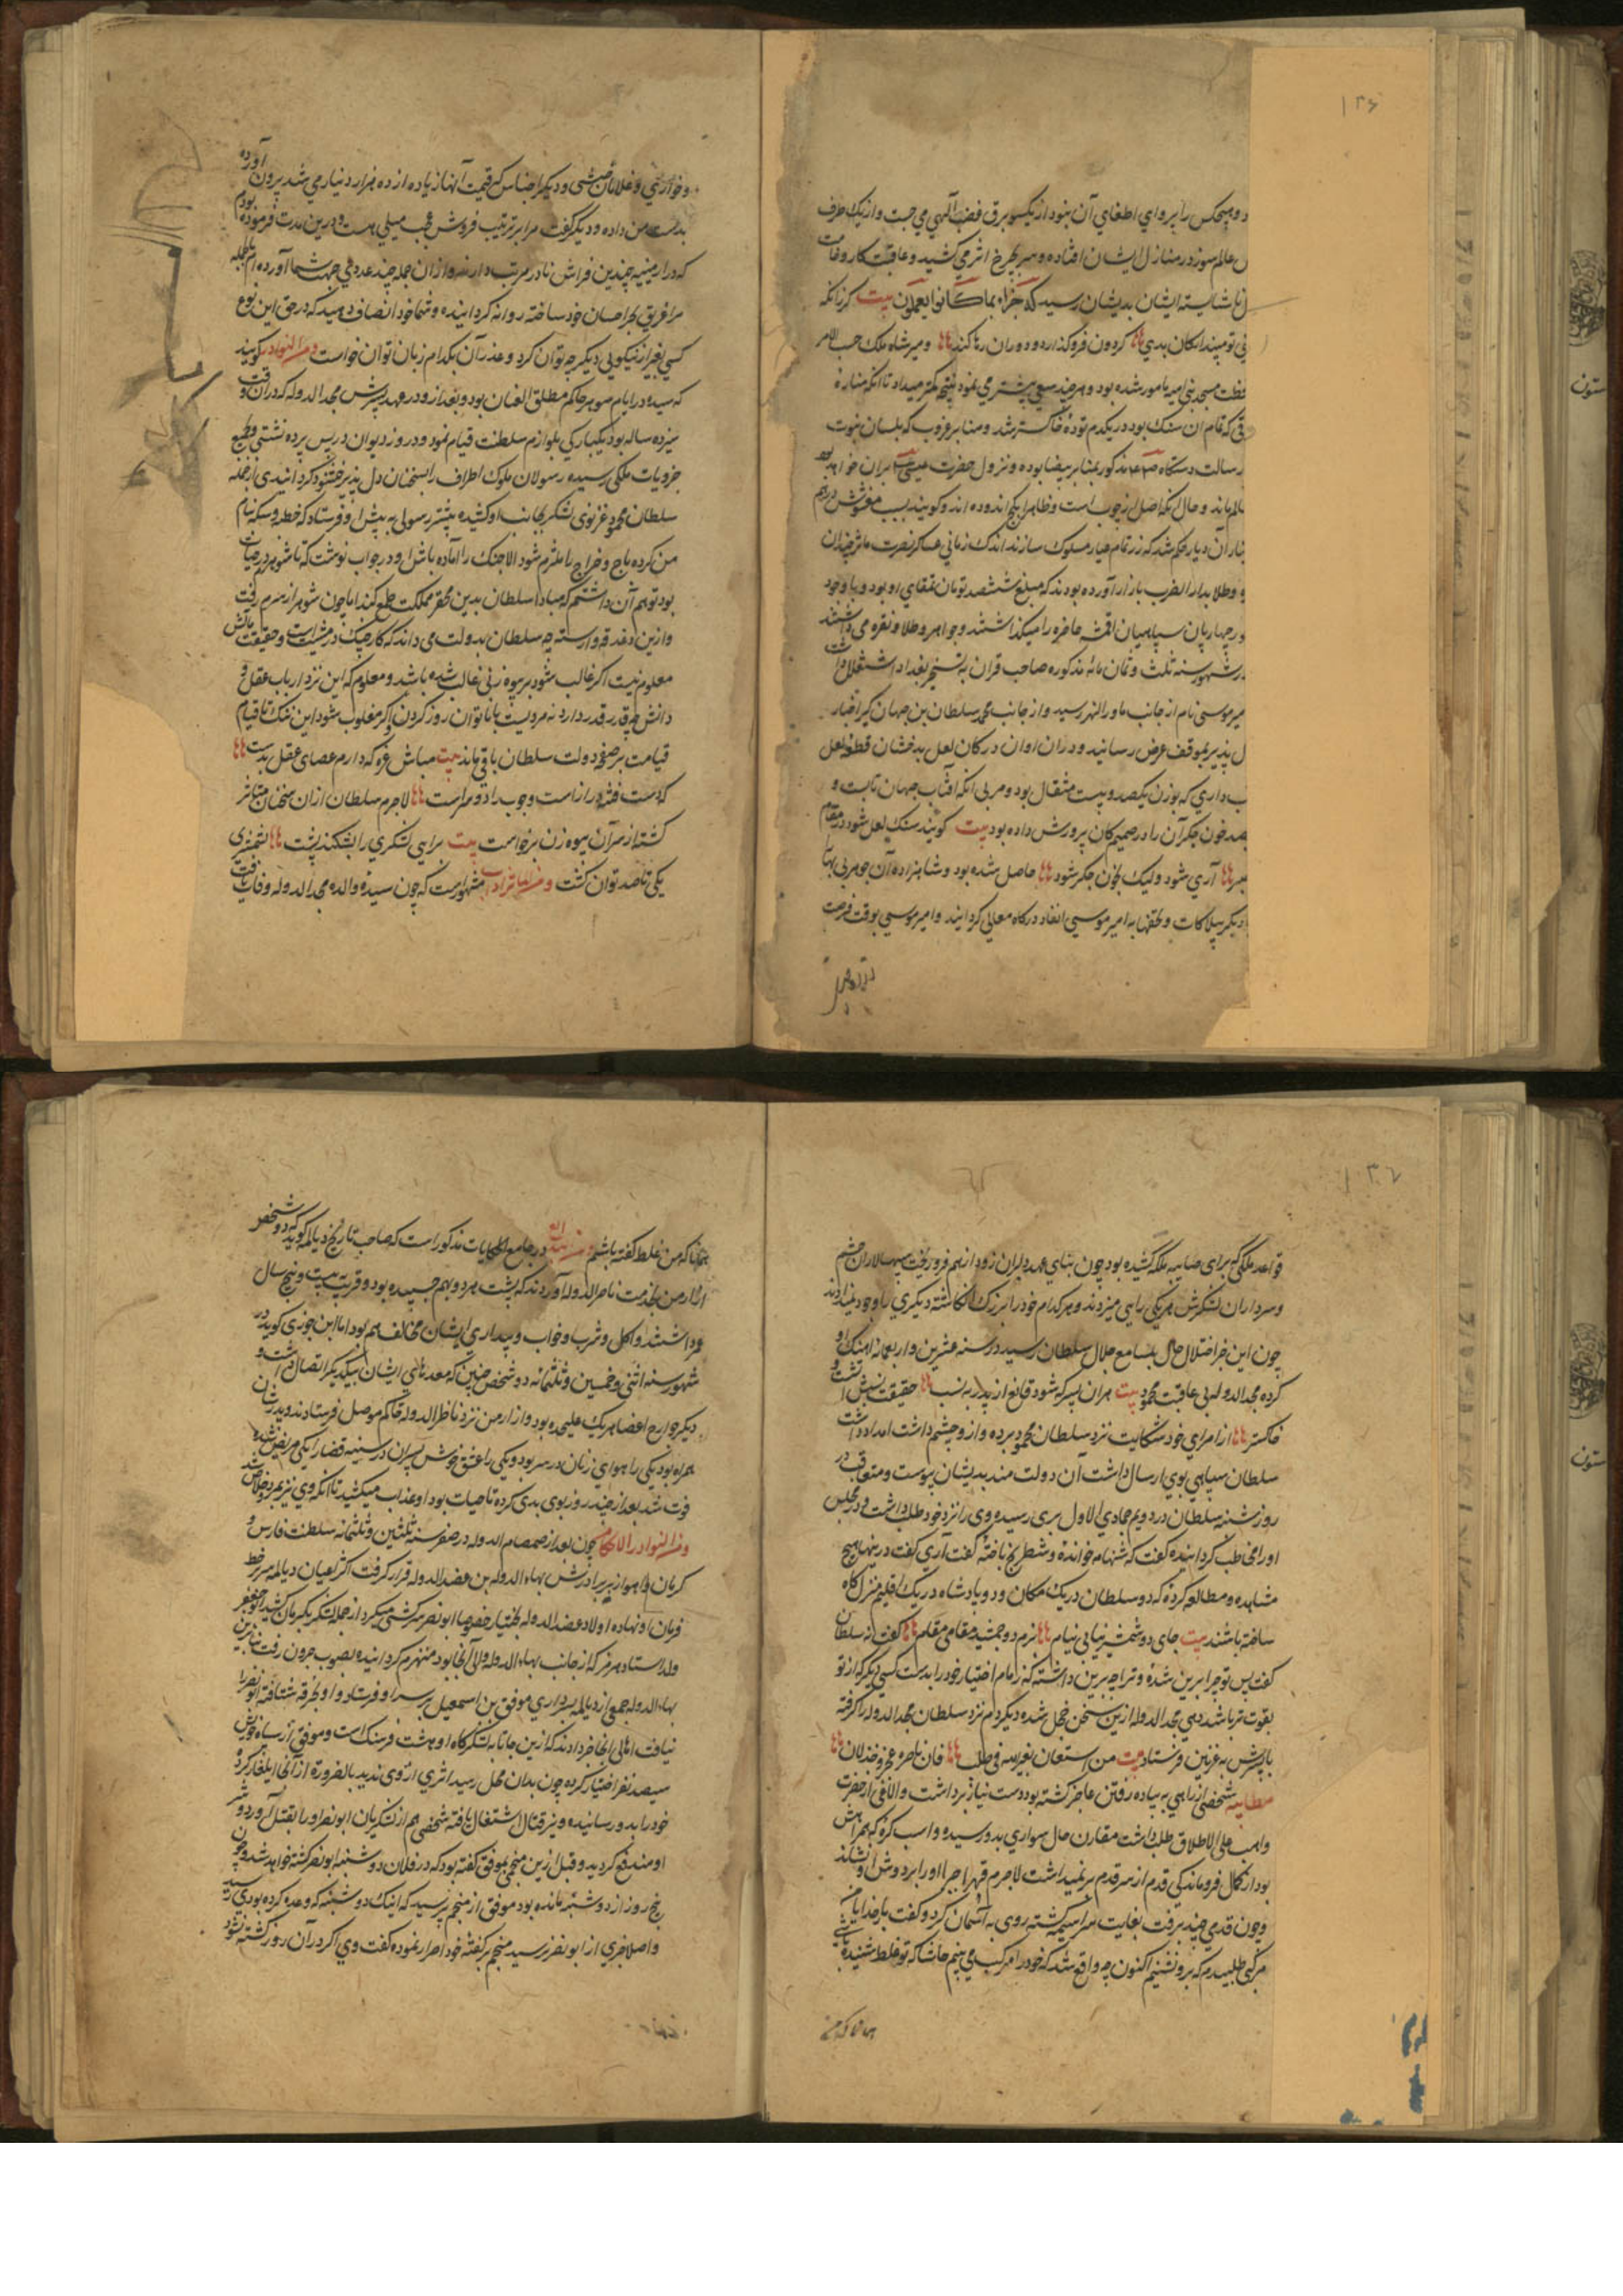 ۱۳۶
و هیچکس را پروای اطفای آن نبود از یکسو برق غضب الهی می جست و از یک طرف
عالم سوز در منازل ایشان افتاده و سر بچرخ اثیر می کشید و عاقبت کار وخامت
ناشایسته ایشان بدیشان رسید که جزاء بما کانوا یعملون بیت کرزانکه
تو مپندار کان بدی ۵۵ کردون فرو کذارد و دوران رها کند ۵۵ و میر شاه ملک حسب الامر
مسجد بنی امیه مامور شده بود و هر چند سعی بیشتر می نمود نتیجه کمتر میداد تا آنکه مناره
که تمام آن سنک بود در یکدم توده خاکستر شد و مناره عروب که بلسان نبوت
رسالت دستگاه صلعم مذکور بمناره بیضا بوده و نزول حضرت عیسی بران خواهد بود
سالم ماند و حال آنکه اصل از چوب است و ظاهرا بکچ اندوده اند و کویند بسبب مغشوش دراهم
آن دیار حکم شد که زر تمام عیار مسکوک سازند اندک زمانی عساکر نصرت ماثر چندان
و طلا بدار الضرب بازار آورده بودند که مبلغ ششصد تومان تمغای او بود و با وجود
چهارپایان سپاهیان اقمشه فاخره را میکذاشتند و جواهر و طلا و نقره می داشتند
در شهور سنه ثلث و ثمان مائه مذکوره صاحب قران به تسخیر بغداد اشتغال داشت
میر موسی نام از جانب ماورالنهر رسید و از جانب محمد سلطان بن جهان کیر اخبار
دل پذیر بموقف عرض رسانید و دران اوان در کان لعل بدخشان قطعه لعل
داری که بوزن یکصد و بیست مثقال بود و مربی آنکه آفتاب جهان تابست و
بصد خون جکر آن را در صمیم کان پرورش داده بود بیت کویند سنک لعل شود در مقام
صبر ۵۵ آری شود ولیک بخون جکر شود ۵۵ حاصل شده بود و شاهزاده آن جوهر بی بها
دیکر بیلاکات و تحفها به امیر موسی انفاد درکاه معالی کردانید و امیر موسی بوقت فرصت
و خوارزمی و غلامان حبشی و دیکر اجناس که قیمت آنها زیاده از ده هزار دینار می شد بیرون آورده
بدست من داده و دیکر گفت مرا بر ترتیب فروش عجب میلی هست و درین مدت فرموده بودم
که در ارمینیه چندین فراش نادر مرتب دارند و ازان جمله چند عددی جهت شما آورده ام بالجمله
مرا غریق بحر احسان خود ساخته روانه کردانیده و شما خود انصاف دهید که در حق این نوع
کسی بغیر از نیکویی دیکر چه توان کرد و عذر آن بکدام زبان توان خواست و من النوادر کویند
که سیده در ایام شوهر حاکم مطلق العنان بود و بعد ازو در عهد پسرش مجد الدوله که دران وقت
سیزده ساله بود یکبارکی بلوازم سلطنت قیام نمود و در روز دیوان در پس پرده نشستی و قطع
جزویات ملکی رسیده رسولان ملوک اطراف را بسخنان دل پذیر خشنود کردانیدی از جمله
سلطان محمود غزنوی لشکر بجانب او کشیده بیشتر رسولی به پیش او فرستاد که خطبه و سکه بنام
من کرده باج و خراج را ملتزم شود الا جنک را آماده باش او در جواب نوشت که تا شوهرم در حیات
بود توهم آن داشتم که مبادا سلطان بدین محقر مملکت طمع کند اما چون شوهر از سرم رفت
و ازین دغدغه وارسته چه سلطان بدولت می داند که کار جنک در مشیت است و حقیقت مالش
معلوم نیست اکر غالب شود بر بیوه زنی غالب شده باشد و معلوم که این نزد ارباب عقل و
دانش چه قدر دارد نه مردیست با ناتوان زور کردن و اکر مغلوب شود این ننک تا قیام
قیامت بر صفحه دولت سلطان باقی ماند بیت مباش غره که دارم عصای عقل بدست ۵۵
که دست فتنه دراز است و چوب را دو سر است ۵۵ لاجرم سلطان ازان سخنان متاثر
کشته از سر آن بیوه زن برخواست بیت برایی لشکری را بشکند پشت ۵۵ بشمشیری
یکی تا صد توان کشت و من الماثر ادب مشهورست که چون سیده والده مجد الدوله وفات یافت
۱۳۷
قواعد ملکی که برای صایبه ملکه کشیده بود چون بنای عهد دلبران زود از هم فرو ریخت سپهسالاران حشم
و سرداران لشکرش هر یکی رایی میزدند و هر کدام خود را بزرک انکاشته دیکری را وجود نمی نهادند
چون این خبر اختلال حال بمسامع جلال سلطان رسید در سنه عشرین و اربعمائه آهنک او
کرده مجد الدوله بی عاقبت محمود بیت هر ان پسر که شود قانع از پدر به نسب ۵۵ حقیقت نسبش آتشت و
خاکستر ۵۵ از امرای خود شکایت نزد سلطان محمود برده و ازو چشم داشت امداد داشت
سلطان سپاهی بوی ارسال داشت آن دولت مند بدیشان پیوست و متعاقب در
روز شنبه سلطان در دویم جمادی الاول بری رسیده وی را نزد خود طلب داشت و در مجلس
او را مخاطب کردانیده کفت که شهنامه خوانده و شطرنج باخته کفت آری کفت درینها هیچ
مشاهده و مطالعه کرده که دو سلطان در یک مکان و دو پادشاه در یک اقلیم منزل کاه
ساخته باشند بیت جای دو شمشیر نیابی نیام ۵۵ بزم دو جمشید مقامی مقام ۵۵ کفت نه سلطان
کفت پس تو چرا برین شده و ترا چه برین داشته که زمام اختیار خود را بدست کسی دیکر که از تو
بقوت تر باشد دهی مجد الدوله ازین سخن خجل شده دیکر دم نزد سلطان مجد الدوله را کرفته
با پسرش به غزنین فرستاد بیت من استعان بغیر الله فی طلب ۵۵ فان ناصره عجز و خذلان ۵۵
مطایبه شخصی از راهی به پیاده رفتن عاجز کشته بود دست نیاز برداشت و الاغی از حضرت
واهب علی الاطلاق طلب داشت مقارن حال سواری بدو رسیده و اسب کره که همراهش
بود از کمال فروماندکی قدم از سر قدم بر نمیداشت لاجرم قهرا جبرا او را بر دوش او نشاند
و چون قدمی چند برفت بغایت سراسیمه کشته روی به آسمان کرد و کفت بار خدایا من
مرکبی طلبیدم که برو نشینم اکنون چه واقع شد که خود را مرکب می بینم حاشا که تو غلط شنیده باشی
همانا که من
همانا که من غلط کفته باشم من بدایع در جامع الحکایات مذکور است که صاحب تاریخ دیالمه کوید که دو شخص
از ارمن بخدمت ناصر الدوله آوردند که پشت هر دو بهم چسپیده بود و قریب به بیست و پنج سال
عمر داشتند و اکل و شرب و خواب و بیداری ایشان مخالف هم بود اما ابن جوزی کوید در
شهور سنه اثنی و خمسین و ثلثمائه دو شخص چنین که معده های ایشان بیکدیکر اتصال داشت و
دیکر جوارح اعضا هر یک علیحده بود و از ارمن نزد ناظر الدوله حاکم موصل فرستادند و پدرشان
همراه بود یکی را هوای زنان در سر بود و یکی را عشق خوش پسران در سینه قضا را یکی مریض شده
فوت شد بعد از چند روز بوی بدی کرده تا حیات بود او عذاب میکشید تا آنکه وی نیز بمرد و خلاص شد
و من النوادر الاحکام چون بعد از صمصام الدوله در صفر سنه ثلثین و ثلثمائه سلطنت فارس و
کرمان و اهواز بر برادرش بهاء الدوله بن عضد الدوله قرار کرفت اکثر اعیان دیالمه سر بر خط
فرمان او نهاده اولاد عضد الدوله بختیار خصوصا ابو نصر سرکشی میکرد از جمله لشکر بکرمان کشید ابو جعفر
ولد استاد هرمز که از جانب بهاء الدوله والی آنجا بود منهزم کردانیده بصوب جرون رفت بنابرین
بهاء الدوله جمعی از دیالمه بسرداری موفق بن اسمعیل بر سر او فرستاد و او بجرفه شتافته ابو نصر را
نیافت اهالی آنجا خبر دادند که ازین جا تا به لشکرکاه او هشت فرسنک است و موفق از سپاه خویش
سیصد نفر اختیار کرده چون بدان محل رسید اثری از وی ندید بالضرورة از آنجا ایلغار کرده
خود را بدو رسانیده و نیز قتال اشتغال یافته شخصی هم از لشکریان ابو نصر او را بقتل آورد و شر
او مندفع کردید و قبل ازین منجمی بموفق کفته بود که در فلان دوشنبه ابو نصر کشته خواهد شد و چون
پنج روز از دوشنبه مانده بود موفق از منجم پرسید که اینک دوشنبه که وعده کرده بودی رسید
و اصلا خبری از ابو نصر نرسید منجم بر کفته خود اصرار نموده کفت وی اکر در آن روز کشته نشود